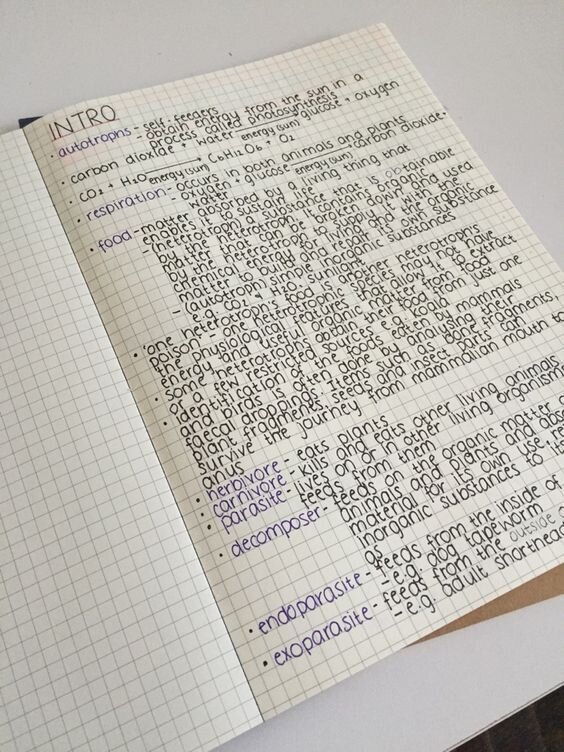 INTRO
• autotrophs - self-feeders
- obtain energy from the sun in a
process called photosynthesis
• carbon dioxide + water energy (sun) → glucose + oxygen
• CO2 + H2O energy (sun) → C6H12O6 + O2
• respiration - occurs in both animals and plants
- oxygen + glucose energy (sun) → carbon dioxide +
water
• food - matter absorbed by a living thing that
enables it to sustain life
- (heterotroph) substance that is obtainable
by the heterotroph. It contains organic
matter that can be broken down and used
by the heterotroph to supply it with the
chemical energy for living and the organic
matter to build and repair its own substance
- (autotroph) simple inorganic substances
e.g. CO2 + H2O + sunlight
• 'one heterotroph's food is another heterotrophs
poison' - one heterotrophic species may not have
the physiological features that allow it to extract
energy and useful organic matter from food
• some heterotrophs obtain their food from just one
or a few restricted sources e.g. koala
• identification of the foods eaten by mammals
and birds is often done by analysing their
faecal droppings. Items such as bone fragments,
plant fragments, seeds and insect parts can
survive the journey from mammalian mouth to
anus
• herbivore - eats plants
• carnivore - kills and eats other living animals
• parasite - lives on or in other living organisms
feeds from them
• decomposer - feeds on the organic matter of
animals and plants and
material for its own use,
inorganic substances to its
as
• endoparasite - feeds from the inside of
- e.g. dog tapeworm
• exoparasite - feeds from the outside
- e.g. adult shorthead